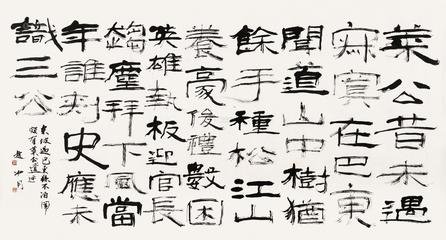 萊公昔未遇
寂寞在巴東
聞道山中樹猶
餘手種松江山
養豪俊禮數困
英雄執板迎官長
趨塵拜下風當
年誰刺史應未
識三公
東坡過巴東縣不泊聞
頗有萊公遺迹